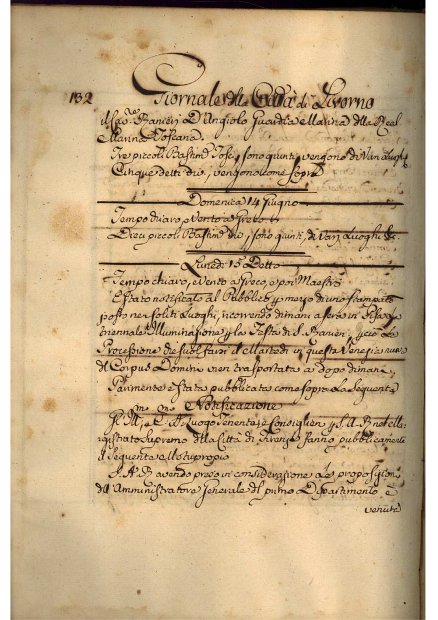 132 Giornale della Città di Livorno
il Sav.re Ranieri D'Angiolo Guardia Marina della Real
Marina Toscana.
Tre piccoli Bastim.ti Tosc. sono giunti, vengono da Varj Luoghi
Cinque detti div. vengono come sopra
Domenica 14 Giugno
Tempo chiaro, vento a Greco
Dieci piccoli Bastim.ti div., sono giunti, di Varj Luoghi &c.
Lunedì 15 Detto
Tempo chiaro, e vento a Greco, e poi Maestro
È stato notificato al Pubblico p mezzo di uno stampato
posto nei soliti Luoghi, ricorrendo dimani a sera in Pisa la
triennale Illuminazione p la Festa di S. Ranieri, p ciò la
Processione che suol farsi il Martedì in questa Venezia nuova
del Corpus Domini vien trasportata a dopo dimani.
Parimente è stata pubblicata come sopra la seguente
Notificazione
Gl' Ill.mi Luogotenente, e Consiglieri p S.A.R. nel Ma-
gistrato Supremo della Città di Firenze fanno pubblicamente
il Seguente Motuproprio
S.A.R. avendo preso in considerazione le proposizioni
dell'Amministratore Generale del primo Dipartimento è
venuta